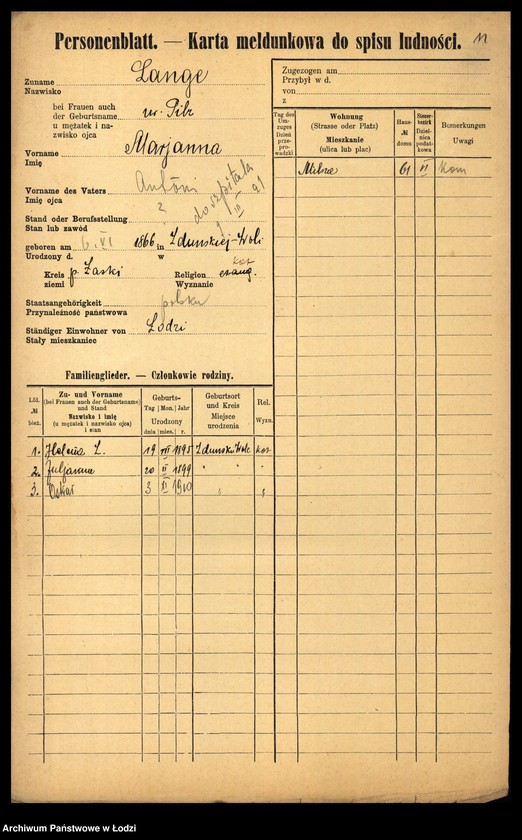 Personenblatt. — Karta meldunkowa do spisu ludności.
11
Zuname Lange
Nazwisko
bei Frauen auch
der Geburtsname ur. Pilz
u mężatek i na-
zwisko ojca
Vorname Marjanna
Imię
Vorname des Vaters Antoni
Imię ojca
do szpitala
Stand oder Berufsstellung ?
Stan lub zawód
geboren am 6. VI 1866 in Zduńskiej-Woli
Urodzony d. w
kat
Kreis p. Łaski Religion ewang.
ziemi Wyznanie
Staatsangehörigkeit polska
Przynależność państwowa
Ständiger Einwohner von Łodzi
Stały mieszkaniec
Familienglieder. — Członkowie rodziny.
Lfd. № bież.
Zu- und Vorname
(bei Frauen auch der Geburtsname)
und Stand
Nazwisko i imię
(u mężatek i nazwisko ojca)
i stan
Geburts-
Tag Mon. Jahr
Urodzony
dnia mies. r.
Geburtsort
und Kreis
Miejsce
urodzenia
Rel.
Wyzn.
1. Helena L. 19 VII 1895 Zduńska Wola kat
2. Juljanna 20 II 1899 " " "
3. Oskar 3 XI 1910 " "
Zugezogen am
Przybył w d.
von
z
Tag des
Um-
zuges
Dzień
prze-
prowadzki
Wohnung
(Strasse oder Platz)
Mieszkanie
(ulica lub plac)
Haus-
№
domu
Steuer-
bezirk
Dziel-
nica
podat-
kowa
Bemerkungen
Uwagi
Milsza 61 VI kom
Archiwum Państwowe w Łodzi